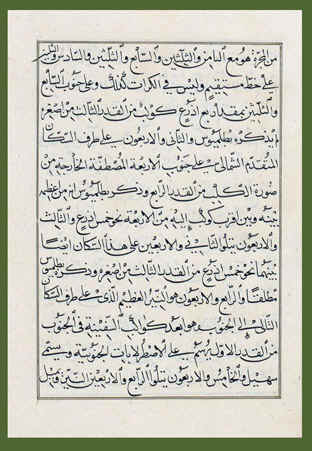 من المجرة هو مع الثامن والثلثين والسابع والثلثين والسادس والثلثين
على خط مستقيم وليس في الكرات كذلك وعلى جنوب السابع
والثلثين بمقدار اربع اذرع كوكب من القدر الثالث من اصغره
لم يذكره بطلميوس والثاني والاربعون على طرف السكان
المتقدم الشمالي على جنوب الاربعة المصطفة الخارجة من
صورة الكلب من القدر الرابع وذكر بطلميوس انه من اعظمه
بينه وبين اقرب كوكب اليه من الاربعة نحو خمس اذرع والثالث
والاربعون يتلو الثاني والاربعين على هذا السكان ايضا
بينهما نحو خمس اذرع من القدر الثالث من اصغره وذكره بطلميوس
مطلقا والرابع والاربعون هو النير العظيم الذي على طرف السكان
الثاني الجنوبي وهو ابعد كواكب السفينة في الجنوب
من القدر الاول يرسم على الاصطرلابات الجنوبية ويسمى
سهيل والخامس والاربعون يتلو الرابع والاربعين النير وقيل